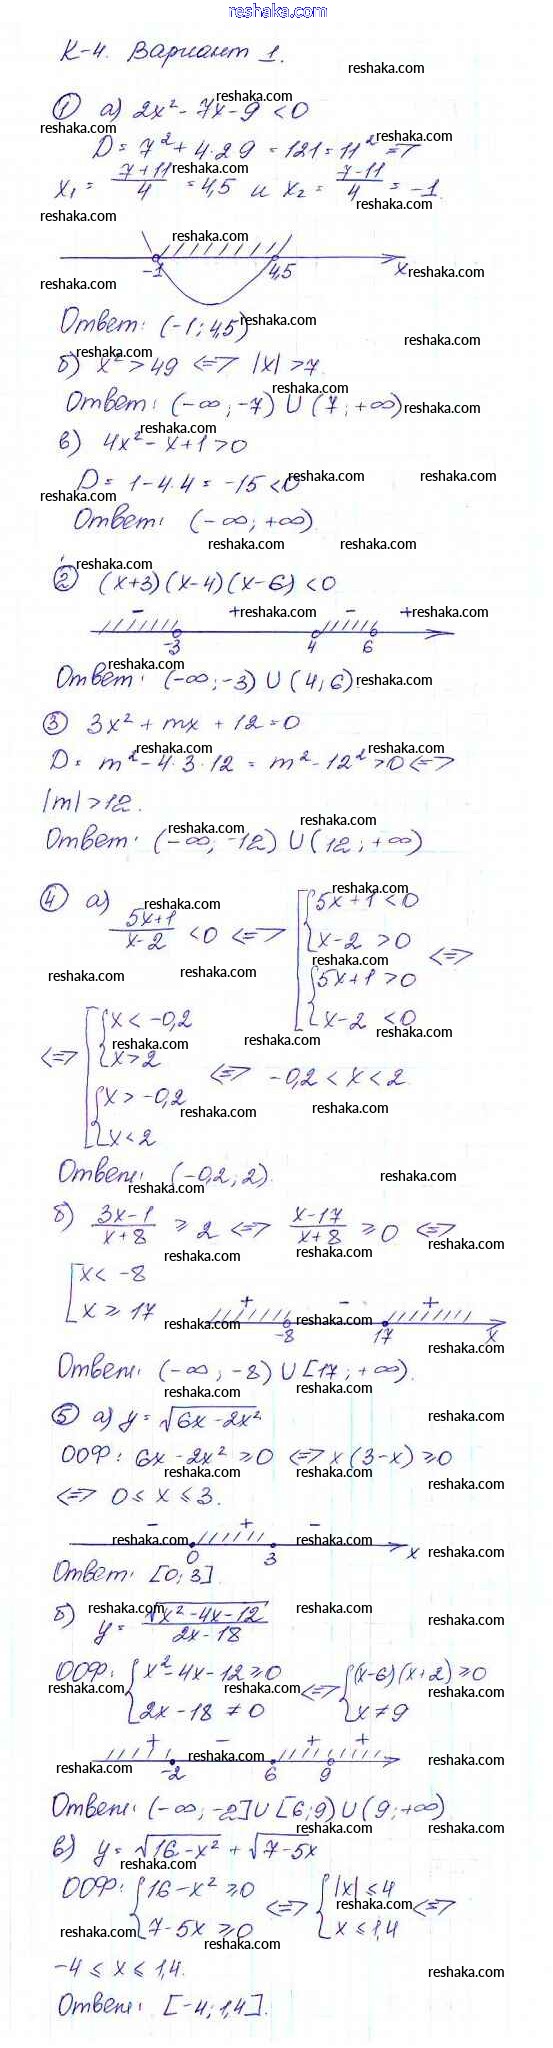 reshaka.com
К-4. Вариант 1.
① а) 2x² - 7x - 9 < 0
D = 7² + 4·2·9 = 121 = 11² ⇒
x₁ = (7+11)/4 = 4,5 и x₂ = (7-11)/4 = -1.
-1 4,5 x
Ответ: (-1; 4,5)
б) x² > 49 ⇔ |x| > 7.
Ответ: (-∞; -7) ∪ (7; +∞)
в) 4x² - x + 1 > 0
D = 1 - 4·4 = -15 < 0
Ответ: (-∞; +∞)
② (x+3)(x-4)(x-6) < 0
- + - +
-3 4 6
Ответ: (-∞; -3) ∪ (4; 6)
③ 3x² + mx + 12 = 0
D = m² - 4·3·12 = m² - 12² > 0 ⇔
|m| > 12.
Ответ: (-∞; -12) ∪ (12; +∞)
④ а) (5x+1)/(x-2) < 0 ⇔ [ { 5x+1 < 0
x-2 > 0
{ 5x+1 > 0
x-2 < 0 ⇔
⇔ [ { x < -0,2
x > 2
{ x > -0,2
x < 2 ⇔ -0,2 < x < 2.
Ответ: (-0,2; 2).
б) (3x-1)/(x+8) ≥ 2 ⇔ (x-17)/(x+8) ≥ 0 ⇔
[ x < -8
x ≥ 17
+ - +
-8 17 x
Ответ: (-∞; -8) ∪ [17; +∞).
⑤ а) y = √(6x - 2x²)
ООФ: 6x - 2x² ≥ 0 ⇔ x(3-x) ≥ 0
⇔ 0 ≤ x ≤ 3.
- + -
0 3 x
Ответ: [0; 3]
б) y = √(x² - 4x - 12)/(2x - 18)
ООФ: { x² - 4x - 12 ≥ 0
2x - 18 ≠ 0 ⇔ { (x-6)(x+2) ≥ 0
x ≠ 9
+ - + +
-2 6 9
Ответ: (-∞; -2] ∪ [6; 9) ∪ (9; +∞)
в) y = √(16 - x²) + √(7 - 5x)
ООФ: { 16 - x² ≥ 0
7 - 5x ≥ 0 ⇔ { |x| ≤ 4
x ≤ 1,4 ⇔
-4 ≤ x ≤ 1,4.
Ответ: [-4; 1,4].